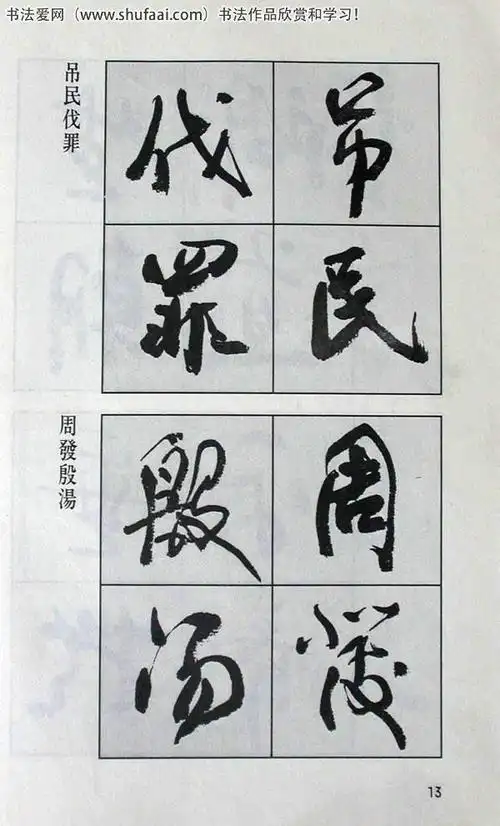 书法爱网（www.shufaai.com）书法作品欣赏和学习！
吊民伐罪
吊民
伐罪
周發殷湯
周發
殷湯
13